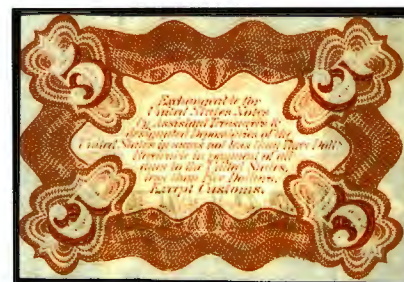 3 3
Exchangeable for
United States Notes
by Assistant Treasurers &
designated Depositaries of the
United States in sums not less than Three Dolls
Receivable in payment of all
dues to the United States
less than Five Dollars,
Except Customs.
3 3